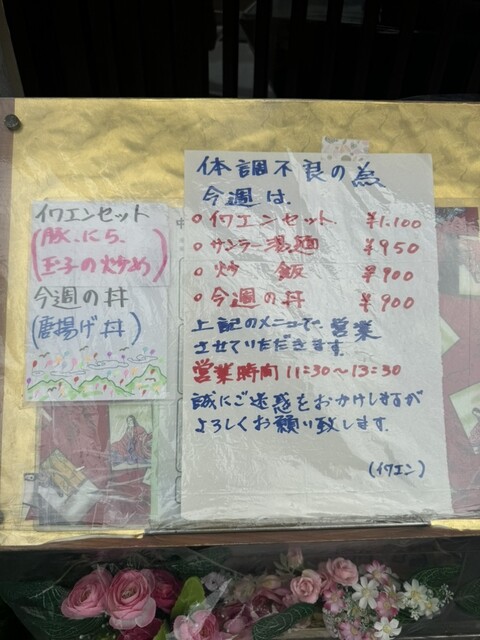 イワエンセット
(豚、にら、
玉子の炒め)
今週の丼
(唐揚げ丼)
体調不良の為
今週は、
○イワエンセット ¥1,100
○サンラー湯麺 ¥950
○炒飯 ¥900
○今週の丼 ¥900
上記のメニューで、営業
させていただきます。
営業時間11:30〜13:30
誠にご迷惑をおかけしますが
よろしくお願い致します。
(イワエン)